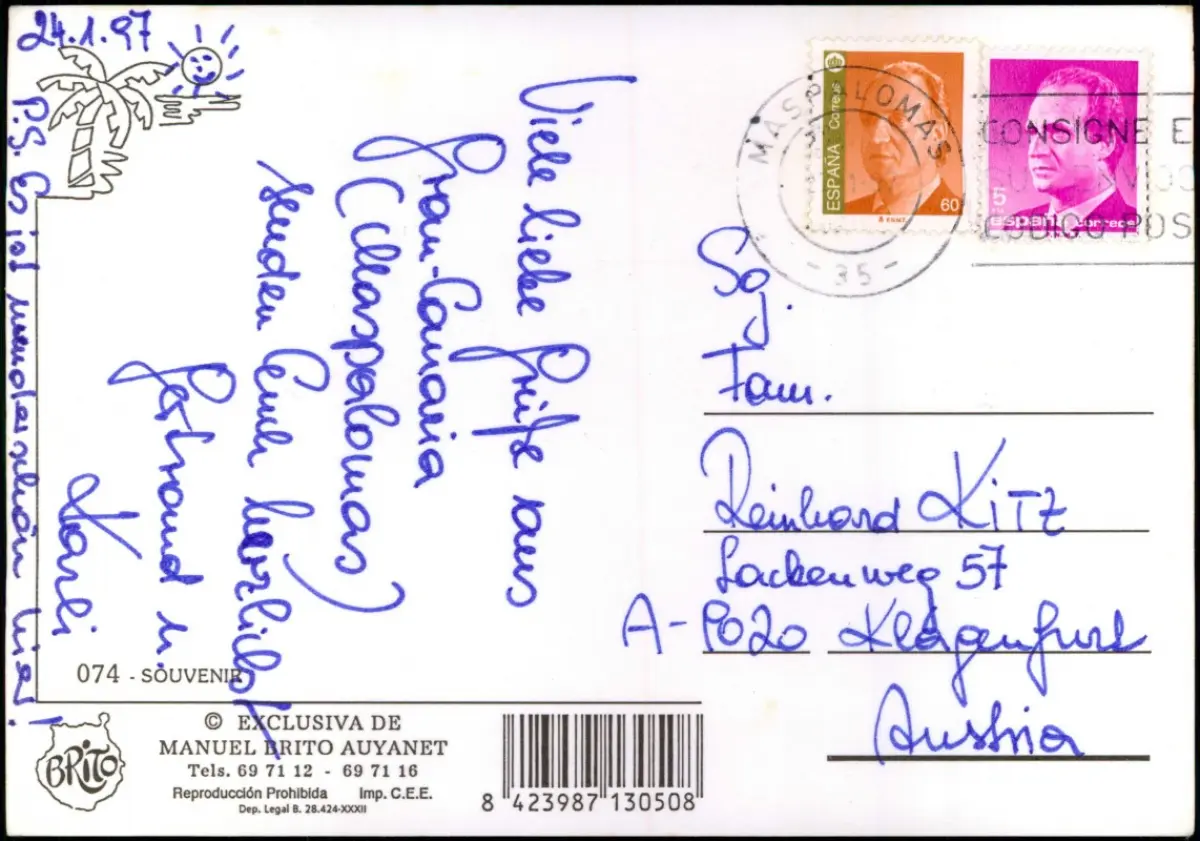 24.1.97
Viele liebe Grüße aus
Gran-Canaria
(Maspalomas)
senden Euch herzlichst
Gertraud u.
Karli
P.S. Es ist wunderschön hier!
MASPALOMAS
- 35 -
ESPAÑA Correos
60
5
españa correos
CONSIGNE E
SUS ENVIOS
CODIGO POS
Sg.
Fam.
Reinhard KiTZ
Lackenweg 57
A-9020 Klagenfurt
Austria
074 - SOUVENIR
BRITO
© EXCLUSIVA DE
MANUEL BRITO AUYANET
Tels. 69 71 12 - 69 71 16
Reproducción Prohibida Imp. C.E.E.
Dep. Legal B. 28.424-XXXII
8 423987 130508